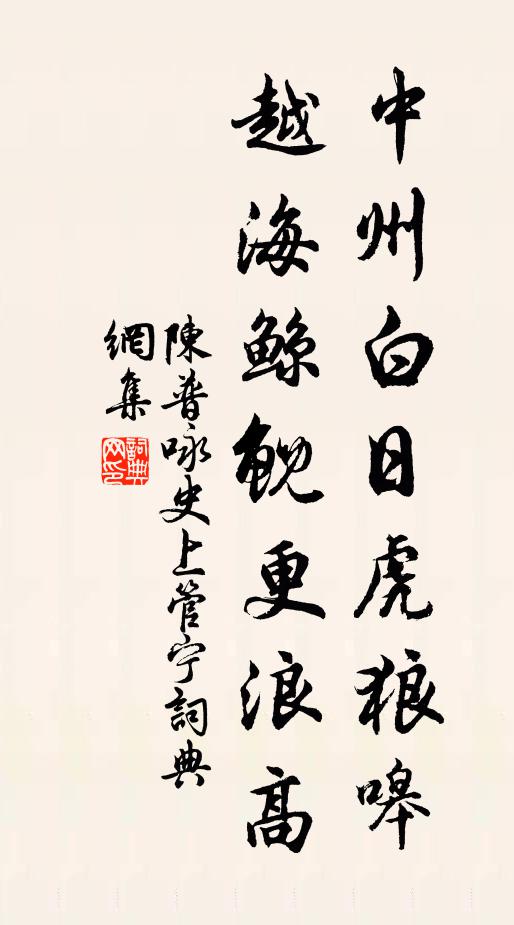 中州白日虎狼嗥
越海鲸鲵更浪高
陳普咏史上管宁詞典
網集
詞典网印